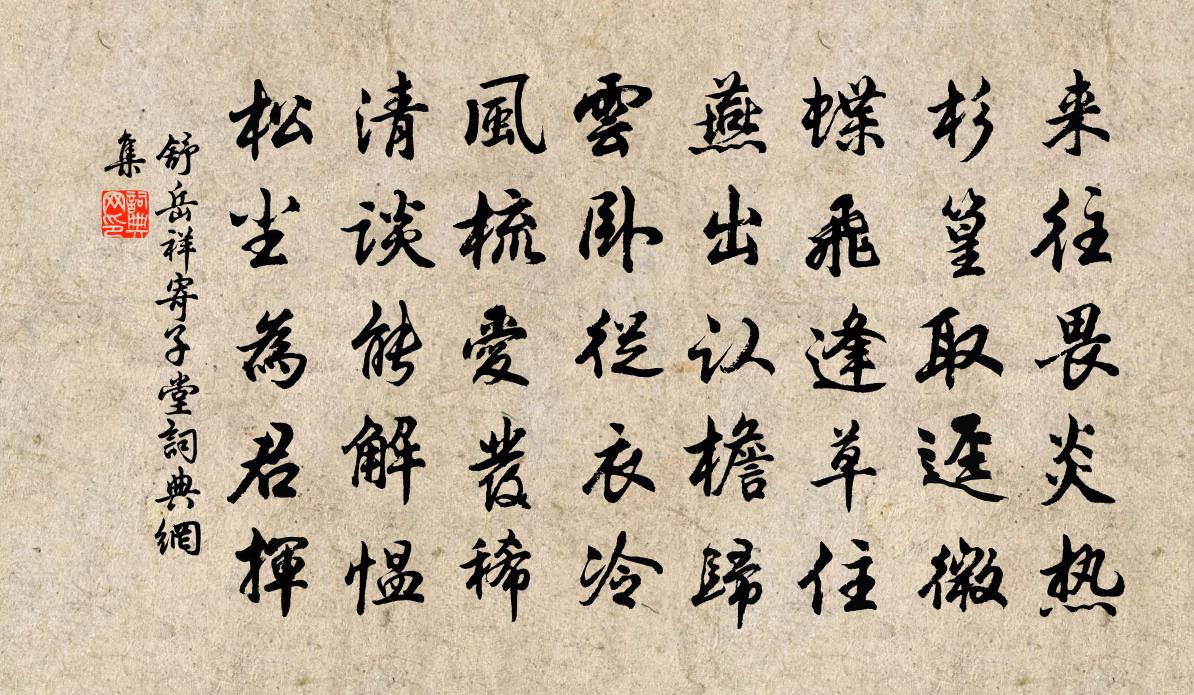 来往畏炎热
杉篁取迳微
蝶飛逢草住
燕出认檐歸
雲卧從衣冷
風梳愛髮稀
清談能解愠
松尘為君揮
舒岳祥寄子堂詞典網
集
詞典網印